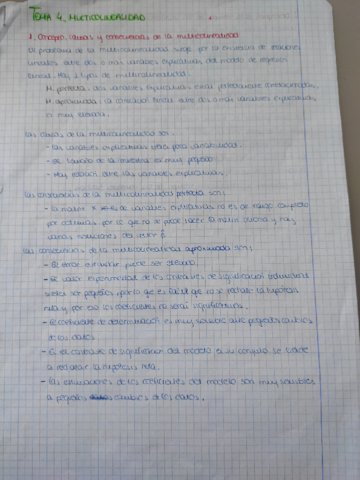 TEMA 4. MULTICOLINEALIDAD
1. Concepto, causas y consecuencias de la multicolinealidad
El problema de la multicolinealidad surge por la existencia de relaciones
lineales entre dos o más variables explicativas del modelo de regresión
lineal. Hay 2 tipos de multicolinealidad:
M. perfecta: dos variables explicativas están perfectamente correlacionadas.
M. aproximada: la correlación lineal entre dos o más variables explicativas
es muy elevada.
Las causas de la multicolinealidad son:
- Las variables explicativas tienen poca variabilidad.
- El tamaño de la muestra es muy pequeño.
- Hay relación entre las variables explicativas.
Las consecuencias de la multicolinealidad perfecta son:
- La matriz X de variables explicativas no es de rango completo
por columnas, por lo que no se puede hacer la matriz inversa y hay
varias soluciones
Las consecuencias de la multicolinealidad aproximada son:
- El error estándar puede ser elevado.
- El valor experimental de los contrastes de significación individual
suele ser pequeño, por lo que es difícil que no se rechace la hipótesis
nula y por eso los coeficientes no serán significativos.
- El coeficiente de determinación es muy sensible ante pequeños cambios
de los datos.
- En el contraste de significación del modelo en su conjunto se tiende
a rechazar la hipótesis nula.
- Las estimaciones de los coeficientes del modelo son muy sensibles
a pequeños cambios de los datos.